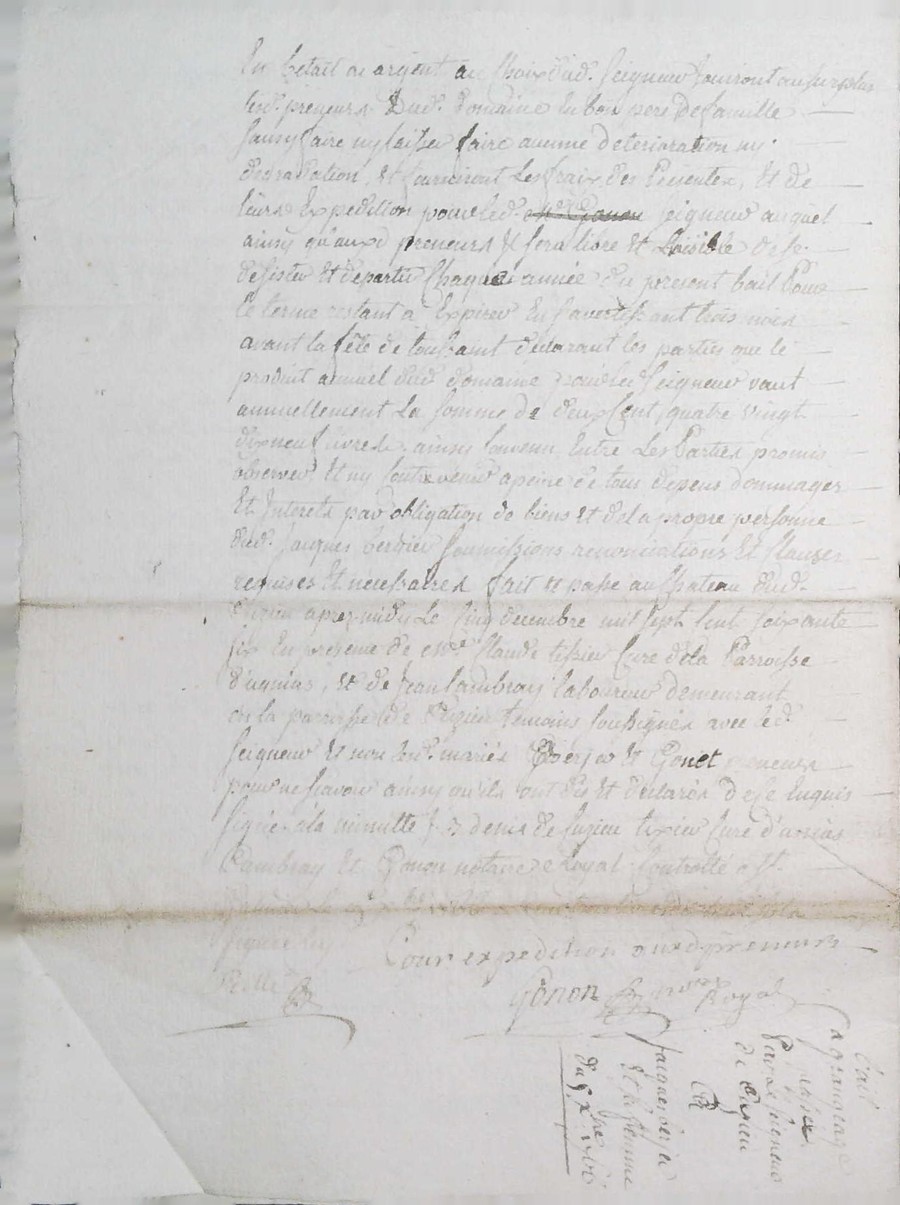 En betail ou argent au Choix dud. Seigneur Jouiront au surplus
lesd. preneurs Dud. domaine En bon pere De famille
sans y faire ny laisser faire aucune deterioration ny
degradation, Et fourniront Les fraix des Presentes, Et de
leurs Expedition pour led. Seigneur auquel
ainsy qu'auxd preneurs Il sera libre Et Loisible de se
desister Et departir Chaque année du present bail Pour
le terme restant a Expirer En s'avertissant trois mois
avant la fête de toussaint declarant les parties que le
produit annuel dud. domaine pour led Seigneur vaut
annuellement La somme de deux Cent quatre vingt
dixneuf livres ainsy Convenu Entre Les Parties promis
observer Et ny Contrevenir a peine de tous depens dommages
Et Interets par obligation de biens Et de la propre personne
dud. Jacques Verdier soumissions renonciations Et Clauses
requises Et necessaires fait et passé au Chateau dud.
Cuzieu apres midy Le Cinq decembre mil sept Cent soixante
six En presence de mre Claude tissier Curé de la Parroisse
d'unias, Et de Jean Cambray laboureur demeurant
en la parroisse de Cuzieu temoins soussignés avec led.
Seigneur Et non lesd. mariés Verjer et Gonet preneurs
pour ne scavoir ainsy qu'ils ont dit Et declarés de ce Enquis
signé a la minutte denis de Cuzieu tixier Curé d'unias
Cambray Et Gonon notaire Royal Controllé a St.
Pour expedition auxd preneurs
Gonon nore Royal
bail
a grangeage
passé
Par Le seigneur
de Cuzieu
a
Jacques Verjer
et sa femme
du 5 xbre 1766